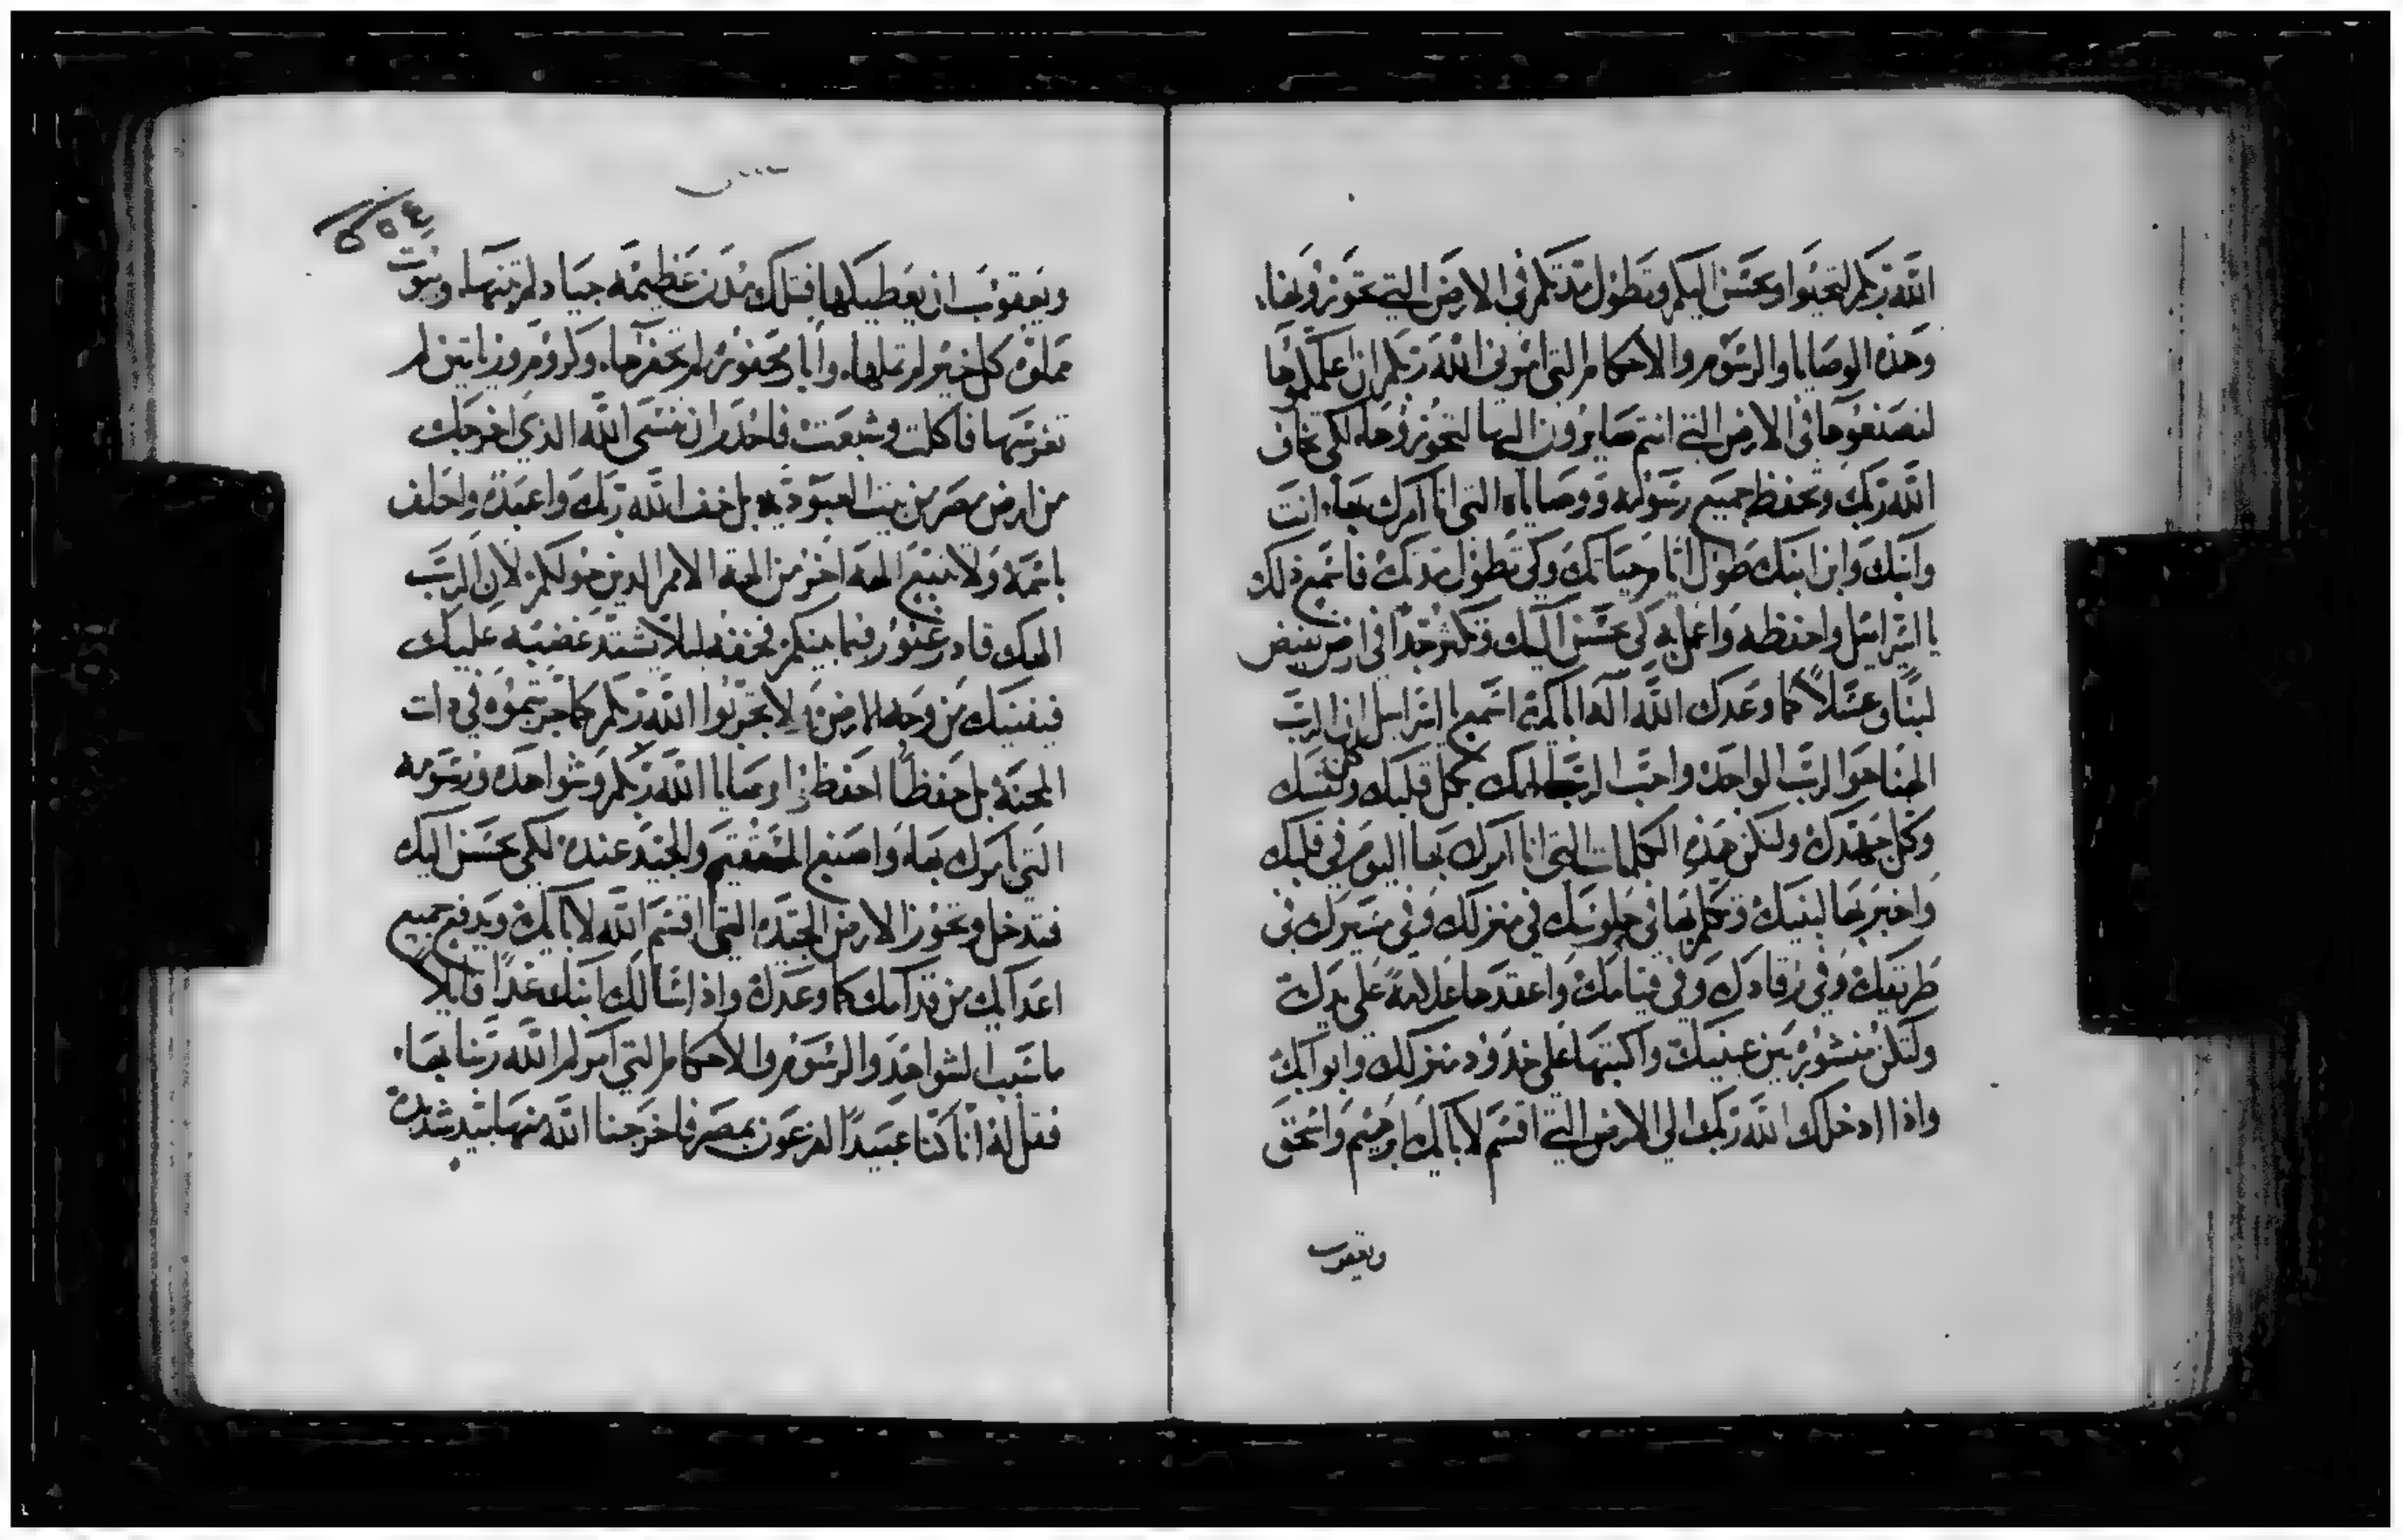 الله ربكم لتحيوا ويحسن اليكم وتطول مدتكم في الارض التي تحوزونها.
وهذه الوصايا والرسوم والاحكام التي امرني الله ربكم ان اعلمكموها
لتصنعوها في الارض التي انتم صايرون اليها لتحوزوها. لكي تخاف
الله ربك وتحفظ جميع رسومه ووصاياه التي انا آمرك بها. انت
وابنك وابن ابنك طول ايام حياتك وكي تطول مدتك فاسمع ذلك
يا اسراييل واحفظه واعمل به لكي يحسن اليك وتكثر جدًا في ارض تفيض
لبنًا وعسلاً كما وعدك الله اله ابايك اسمع يا اسراييل ان الرب
الهنا هو الرب الواحد واحب الرب الهك بكل قلبك ونفسك
وكل جهدك ولتكن هذه الكلمات التي انا آمرك بها اليوم في قلبك
واخبر بها لبنيك وتكلم بها في جلوسك في منزلك وفي مسيرك في
طريقك وفي رقادك وفي قيامك واعقدها علامة على يدك
ولتكن منشورة بين عينيك واكتبها على حدود منزلك وابوابك
واذا ادخلك الله ربك الى الارض التي اقسم لابايك ابرهيم واسحق
ويعقوب
٥٥٤
ويعقوب ان يعطيكها فتلك مدن عظيمه جياد لم تبنها. وبيوت
مملوة كل خير لم تملها. وأبار محفورة لم تحفرها. وكروم وزياتين لم
تغرسها فاكلت وشبعت فاحذر ان تنسى الله الذي اخرجك
من ارض مصر من بيت العبودية بل خف الله ربك واعبده واحلف
باسمه ولا تتبع الهة اخر من الهة الامم الذين حولكم لان الرب
الهك قادر غيور فيما بينكم فخفه ليلا يشتد غضبه عليك
فيفنيك من وجه الارض ولا تجربوا الله ربكم كما جربتموه في ذات
المحنة بل حفظًا احفظوا وصايا الله ربكم وشواهده ورسومه
التي امرك بها واصنع المستقيم والجيد عنده لكي يحسن اليك
فتدخل وتحوز الارض الجيدة التي اقسم الله لابايك ويدفع جميع
اعدايك من قدامك كما وعدك واذا سالك ابنك غدًا قايلاً
ما سبب الشواهد والرسوم والاحكام التي امركم الله ربنا بها.
فقل له انا كنا عبيدًا لفرعون بمصر فاخرجنا الله منها بيد شديدة